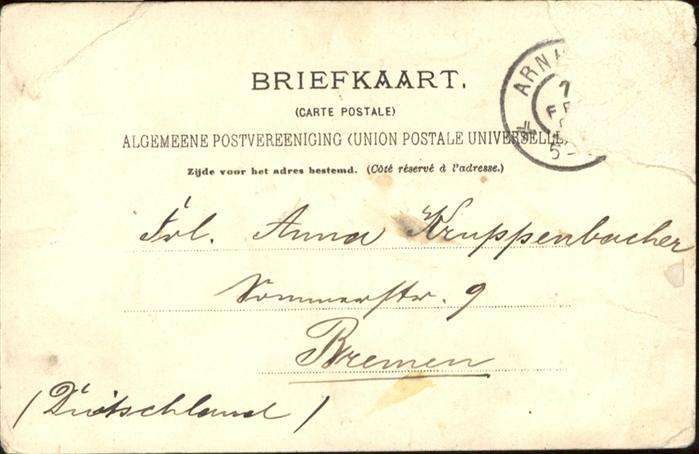 BRIEFKAART.
(CARTE POSTALE)
ALGEMEENE POSTVEREENIGING (UNION POSTALE UNIVERSELLE
Zijde voor het adres bestemd. (Côté réservé à l'adresse.)
ARN
Frl. Anna Kruppenbacher
Sommerstr. 9
Bremen
(Deutschland)